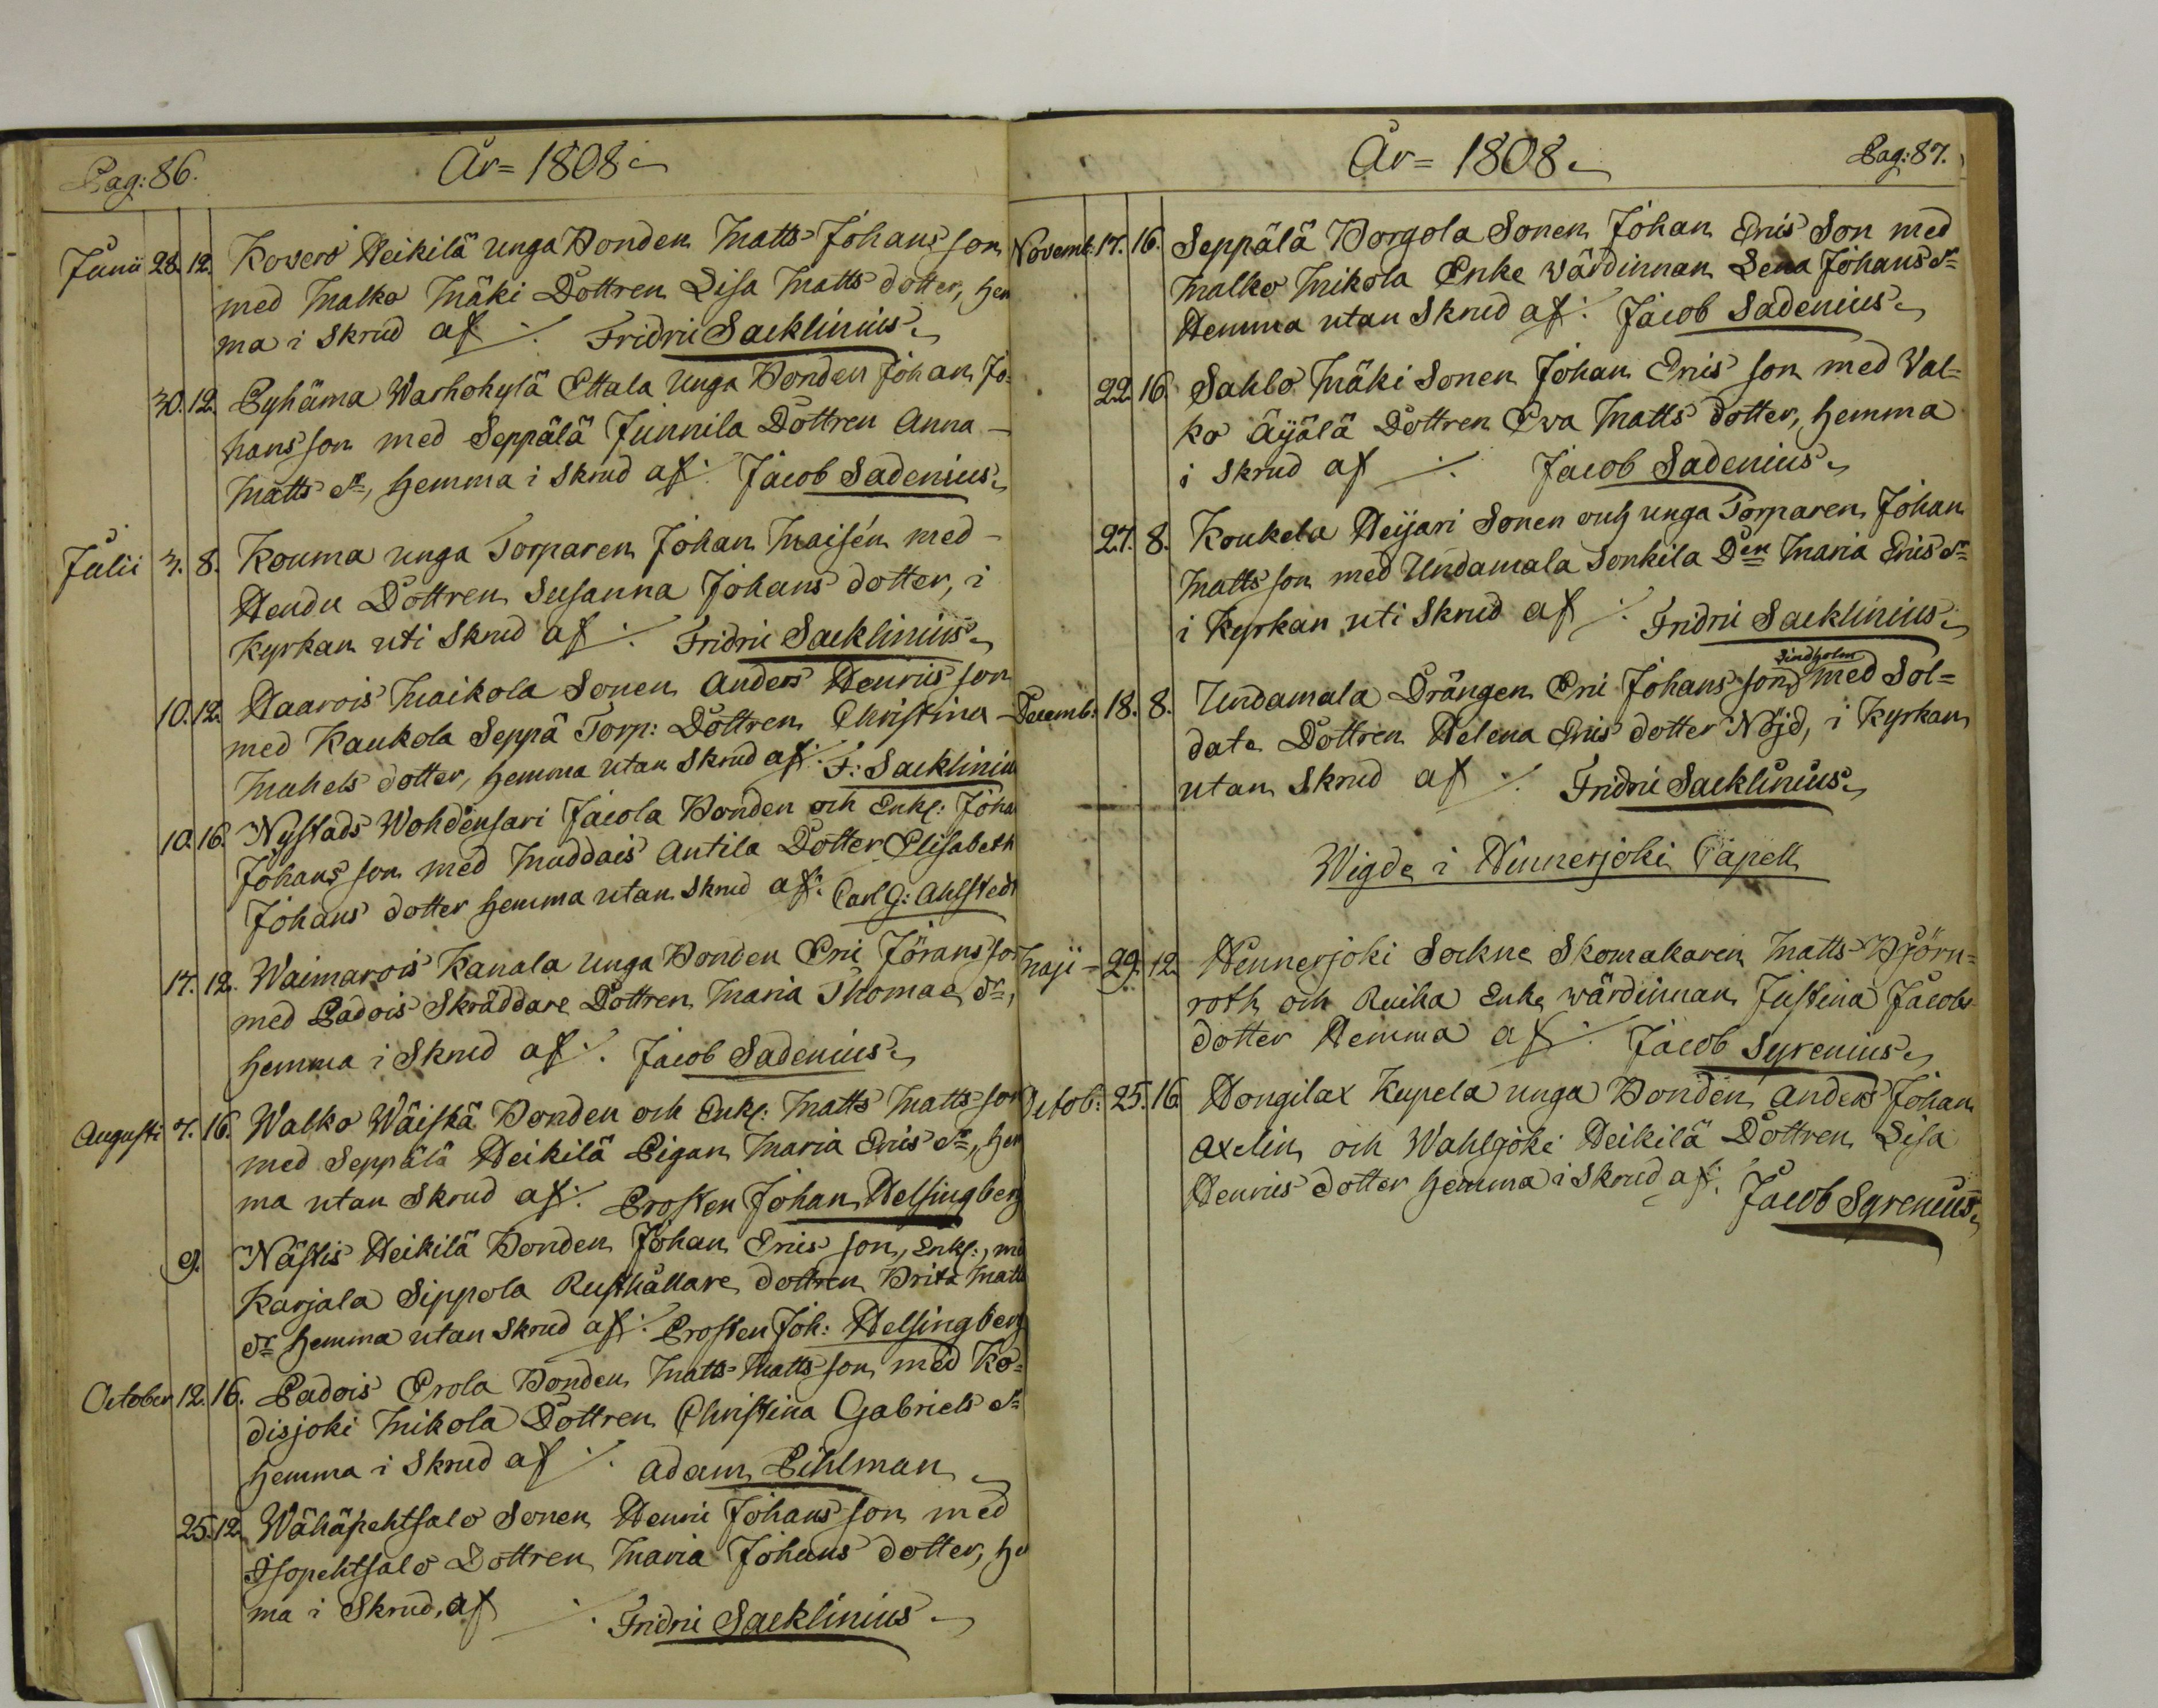 Pag: 86.
År = 1808
Junii 28. 12. Kovero Heikilä unga Bonden Matts Johans son
med Malko Mäki Dottren Lisa Matts dotter, hem
ma i Skrud af ⁒ Fridric Sacklinius
30. 12. Pyhäma Warhokylä Ettala Unga Bonden Johan Jo-
hans son med Seppälä Junnila Dottren Anna
Matts dr, hemma i Skrud af ⁒ Jacob Sadenius
Julii 3. 8. Kouma unga Torparen Johan Maisén med
Hendu Dottren Susanna Johans dotter, i
Kyrkan uti Skrud af ⁒ Fridric Sacklinius
10. 12. Haarois Maikola Sonen Anders Henrics son
med Kaukola Seppä Torp: Dottren Christina
Michels dotter, hemma utan Skrud af ⁒ F: Sackliniu
10. 16. Nystads Wohdensari Jacola Bonden och Enkl: Joha
Johans son med Muddais Antila Dotter Elisabeth
Johans dotter hemma utan Skrud af ⁒ Carl G: Ahlstedt
17. 12. Waimarois Kanala Unga Bonden Eric Jörans son
med Padois Skräddare Dottren Maria Thomae dr,
hemma i Skrud af ⁒ Jacob Sadenius
Augusti 7. 16. Walko Wäiskä Bonden och Enkl: Matts Matts son
med Seppälä Heikilä Pigan Maria Erics dr, hem
ma utan Skrud af ⁒ Prosten Johan Helsingberg
9. Nästis Heikilä Bonden Johan Erics son, Enkl:, med
Karjala Sippola Rusthållare dottren Brita Matts
dr hemma utan Skrud af ⁒ Prosten Joh: Helsingberg
October 12. 16. Padois Erola Bonden Matts Matts son med Ko-
disjoki Mikola Dottren Christina Gabriels dr
hemma i Skrud af ⁒ Adam Pihlman
25. 12. Wähäpehtsalo Sonen Henric Johans son med
Isopehtsalo Dottren Maria Johans dotter, he
ma i Skrud, af ⁒ Fridric Sacklinius
År = 1808
Pag: 87.
Novemb: 17. 16. Seppälä Borgola Sonen Johan Erics Son med
Malko Mikola Enke wärdinnan Lena Johans dr
Hemma utan Skrud af ⁒ Jacob Sadenius
22. 16. Sahlo Mäki Sonen Johan Erics son med Val-
ko Äyälä Dottren Eva Matts dotter, hemma
i Skrud af ⁒ Jacob Sadenius
27. 8. Koukela Heijari Sonen och unga Torparen Johan
Matts son med Undamala Sonkila Dren Maria Erics dr
i Kyrkan uti Skrud af ⁒ Fridric Sacklinius
Lindholm
Decemb: 18. 8. Undamala Drängen Eric Johans son med Sol-
date Dottren Helena Erics dotter Nöjd, i Kyrkan
utan Skrud af ⁒ Fridric Sacklinius
Wigde i Hinnerjoki Capell
Maji 29. 12. Hennerjoki Sockne Skomakaren Matts Björn-
roth och Ruika Enke wärdinnan Justina Jacobs
dotter Hemma af ⁒ Jacob Syrenius
Octob: 25. 16. Hongilax Kupela unga Bonden Anders Johan
Axelin och Wahlsjoki Heikilä Dottren Lisa
Henrics dotter hemma i Skrud af ⁒ Jacob Syrenius